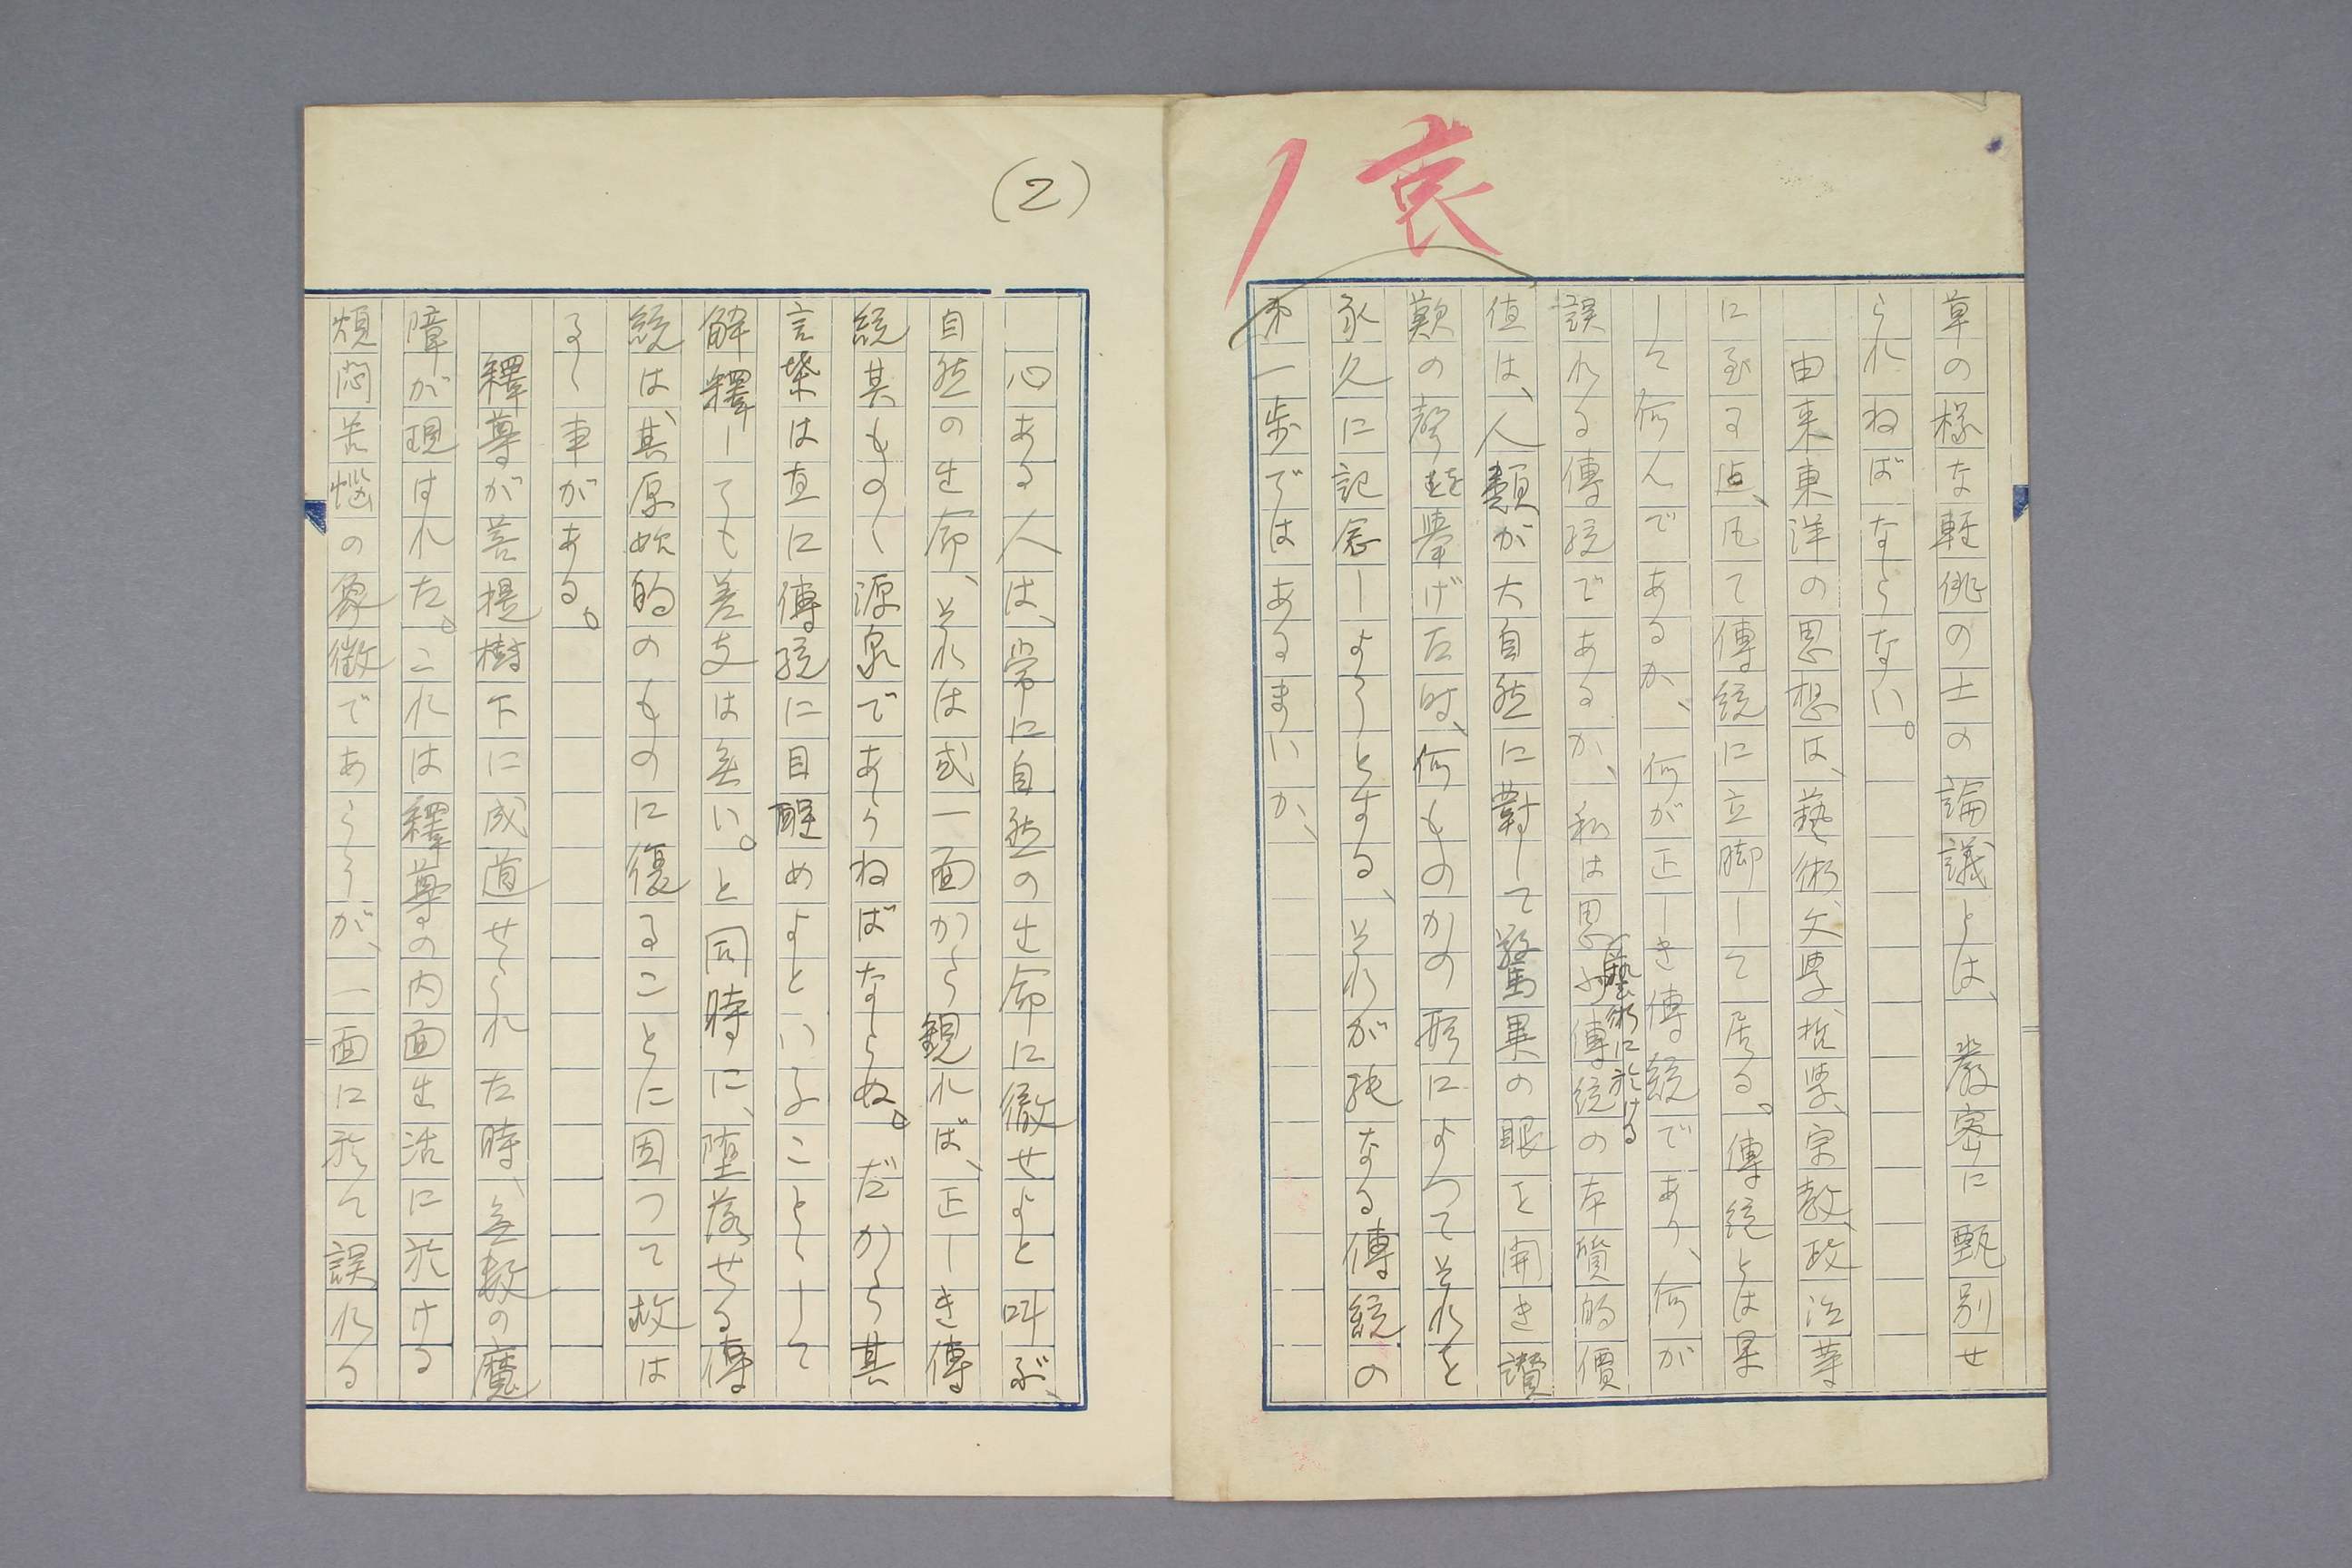 哀
草の様な軽佻の士の論議とは、嚴密に甄別せ
られねばならない。
由来東洋の思想は、藝術、文學、哲學、宗教、政治等
に至る迄、凡て傳統に立脚して居る。傳統とは果
して何んであるか、何が正しき傳統であり、何が
誤れる傳統であるか、私は思ふ、藝術に於ける傳統の本質的價
値は、人類が大自然に對して驚異の眼を開き讃
歎の聲を擧げた時、何ものかの形によつてそれを
永久に記念しようとする、それが純なる傳統の
第一歩ではあるまいか、
(2)
心ある人は、常に自然の生命に徹せよと叫ぶ、
自然の生命、それは或一面から観れば、正しき傳
統其ものゝ源泉であらねばならぬ。だから其
言葉は直に傳統に目醒めよといふことゝして
解釋しても差支は無い。と同時に、堕落せる傳
統は、其原始的のものに復ることに因つて救は
るゝ事がある。
釋尊が菩提樹下に成道せられた時、無数の魔
障が現はれた。これは釋尊の内面生活に於ける
煩悶苦惱の象徴であらうが、一面に於て誤れる